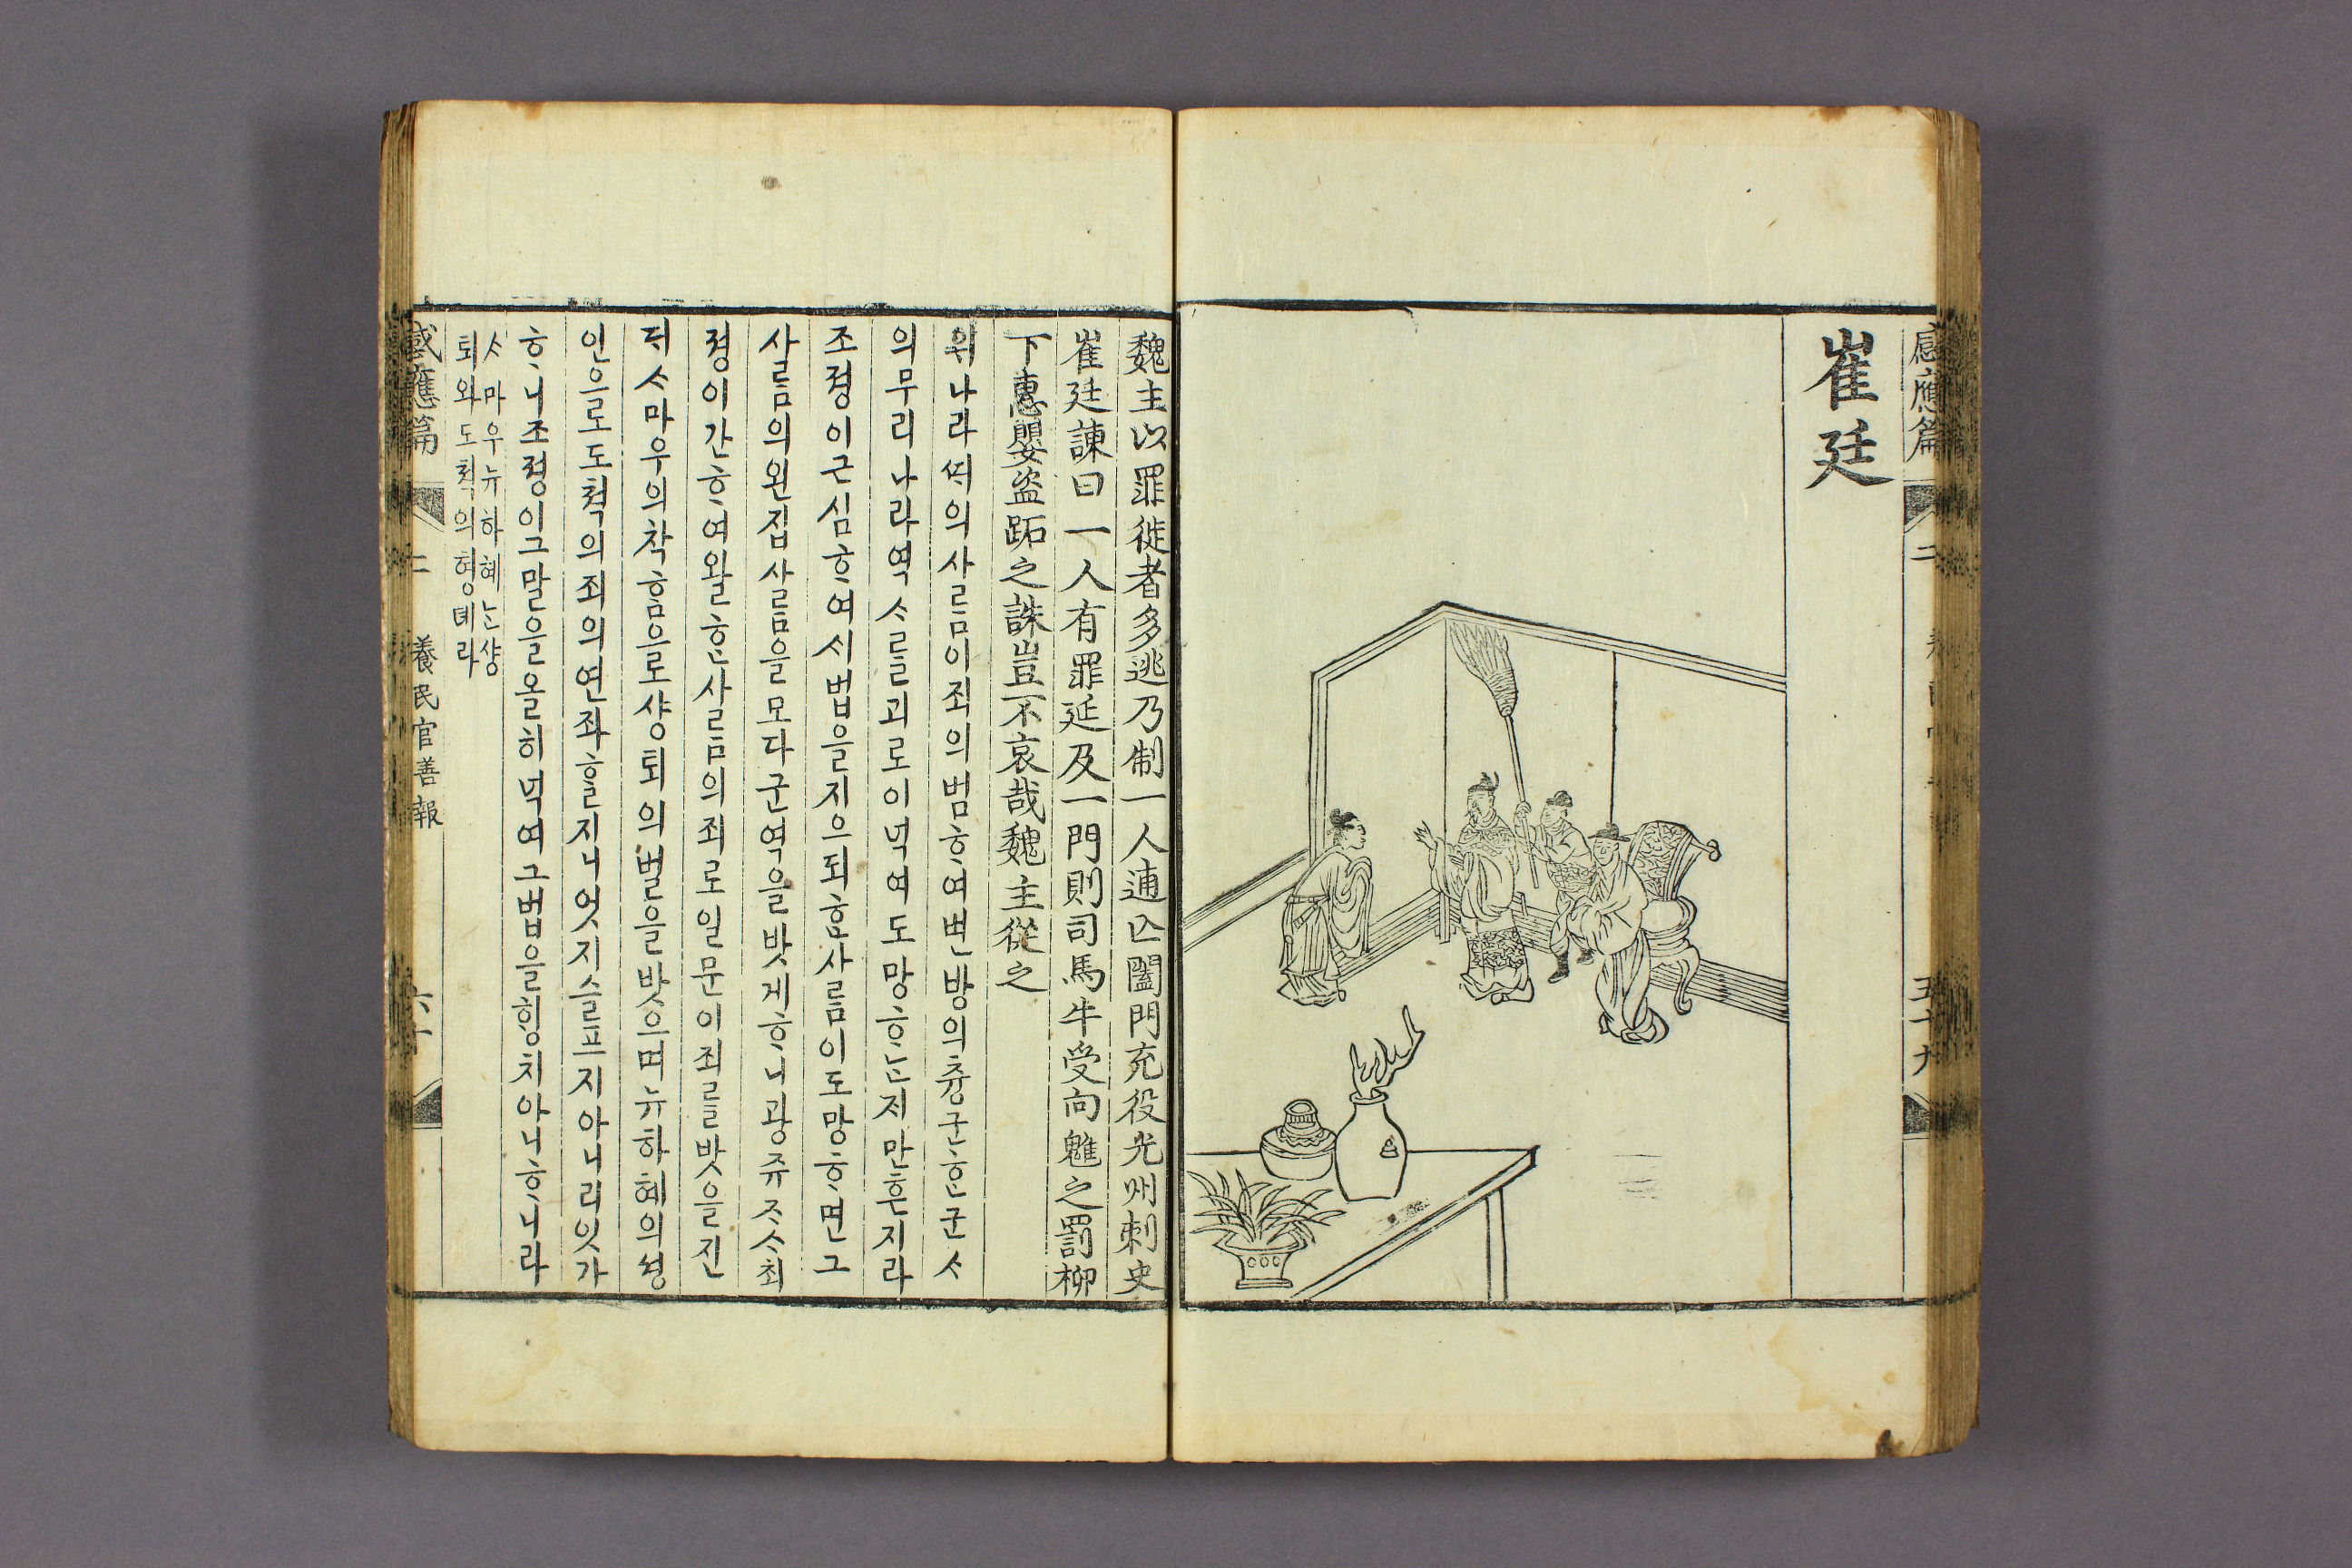 感應篇
二
五十九
崔廷
魏主以罪徙者多逃乃制一人逋亡闔門充役光州刺史
崔廷諫曰一人有罪延及一門則司馬牛受向魋之罰柳
下惠嬰盜跖之誅豈不哀哉魏主從之
위나라 ᄯᅥ의사ᄅᆞᆷ이죄의범ᄒᆞ여변방의츙군ᄒᆞᆫ군ᄉᆞ
의무리나라역ᄉᆞᄅᆞᆯ괴로이넉여도망ᄒᆞᄂᆞᆫ지만흔지라
조졍이근심ᄒᆞ여시법을지으되ᄒᆞᆫ사ᄅᆞᆷ이도망ᄒᆞ면그
사ᄅᆞᆷ의왼집사ᄅᆞᆷ을모다군역을밧게ᄒᆞ니광쥬ᄌᆞᄉᆞ최
졍이간ᄒᆞ여왈ᄒᆞᆫ사ᄅᆞᆷ의죄로일문이죄ᄅᆞᆯ밧을진
뎌ᄉᆞ마우의착ᄒᆞᆷ으로샹퇴의벌을밧으며뉴하혜의셩
인으로도쳑의죄의연좌ᄒᆞᆯ지니엇지슬프지아니리잇가
ᄒᆞ니조졍이그말을올히넉여그법을ᄒᆡᆼ치아니ᄒᆞ니라
ᄉᆞ마우뉴하혜ᄂᆞᆫ샹
퇴와도쳑의형뎨라
感應篇
二
養民官善報
六十